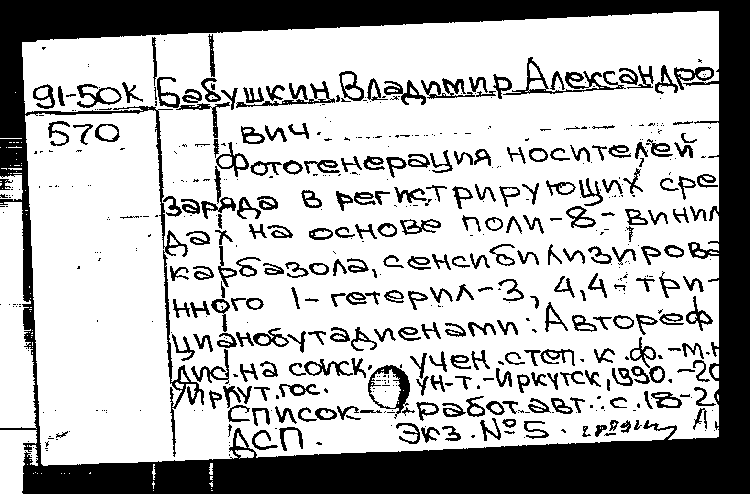 91-50К Бабушкин, Владимир Александро-
570 вич.
Фотогенерация носителей
заряда в регистрирующих сре-
дах на основе поли-8-винил
карбазола, сенсибилизирова
нного 1-гетерил-3, 4,4-три-
цианобутадиенами: Автореф
дис. на соиск. учен. степ. к. ф.-м.н
/Иркут. гос. ун-т.-Иркутск, 1990.-20
Список работ авт.: с. 18-20
ДСП. Экз. №5.